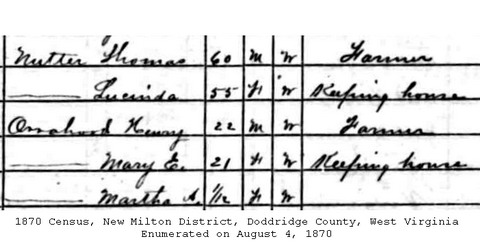 Nutter Thomas 60 M W Farmer
—— Lucinda 55 F W Keeping house
Orrahood Henry 22 M W Farmer
—— Mary E. 21 F W Keeping house
—— Martha A. 1/12 F W
1870 Census, New Milton District, Doddridge County, West Virginia
Enumerated on August 4, 1870